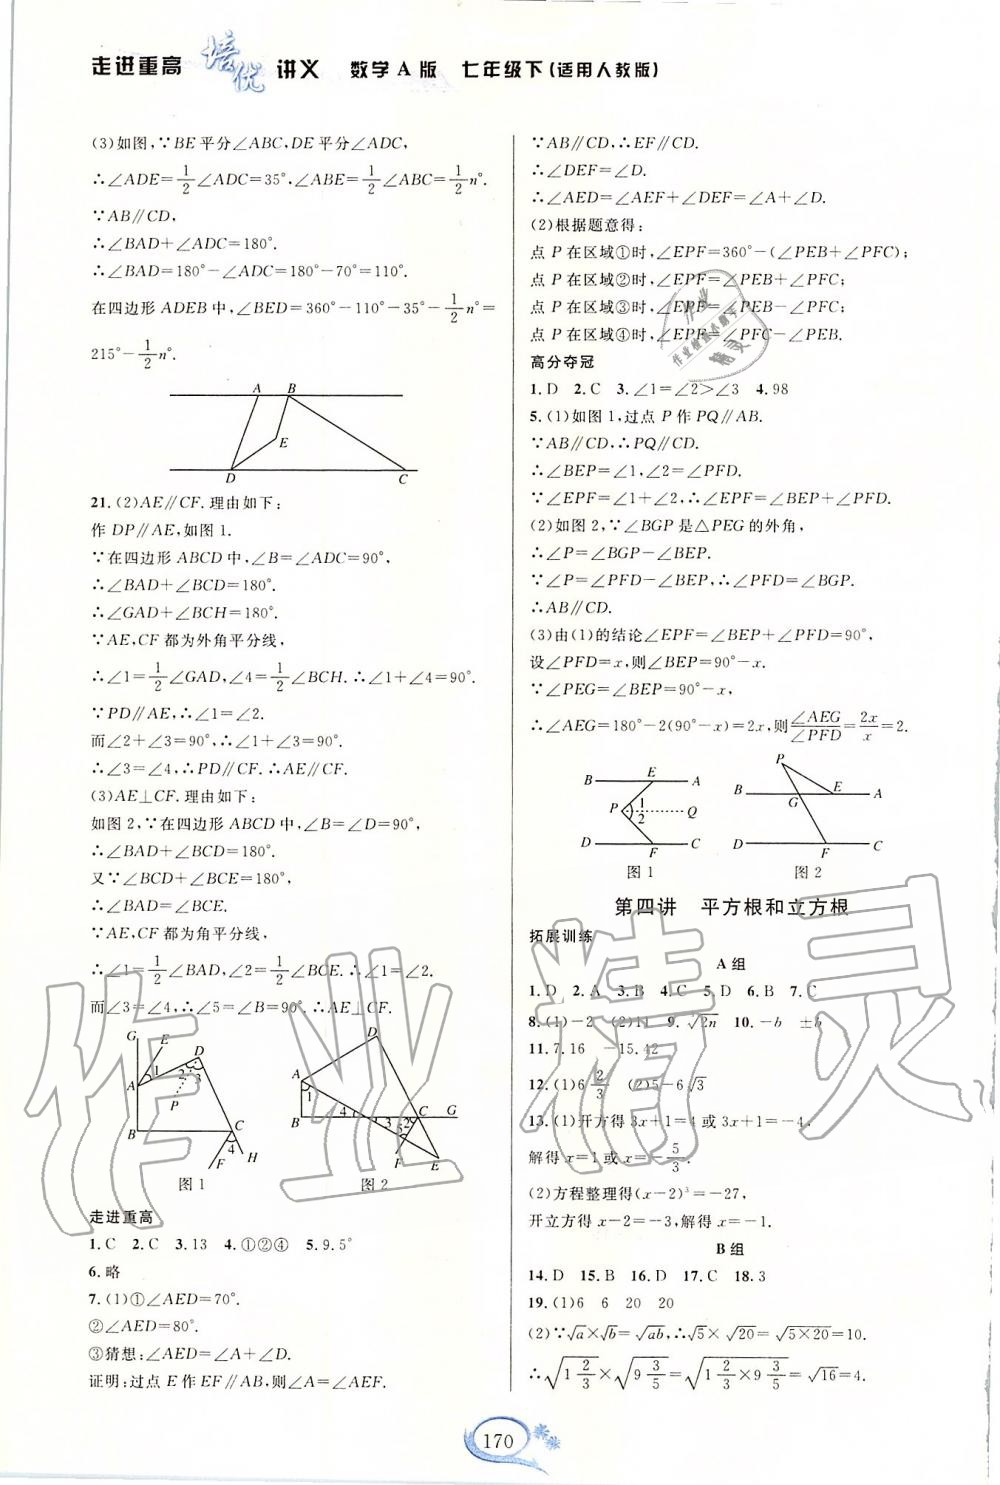 走进重高 培优 讲义 数学A版 七年级下(适用人教版)
(3)如图,∵BE平分∠ABC,DE平分∠ADC,
∴∠ADE=1/2∠ADC=35°,∠ABE=1/2∠ABC=1/2n°.
∵AB∥CD,
∴∠BAD+∠ADC=180°.
∴∠BAD=180°-∠ADC=180°-70°=110°.
在四边形ADEB中,∠BED=360°-110°-35°-1/2n°=
215°-1/2n°.
A B
E
D C
21.(2)AE∥CF.理由如下:
作DP∥AE,如图1.
∵在四边形ABCD中,∠B=∠ADC=90°,
∴∠BAD+∠BCD=180°.
∴∠GAD+∠BCH=180°.
∵AE,CF都为外角平分线,
∴∠1=1/2∠GAD,∠4=1/2∠BCH.∴∠1+∠4=90°.
∵PD∥AE,∴∠1=∠2.
而∠2+∠3=90°,∴∠1+∠3=90°.
∴∠3=∠4,∴PD∥CF.∴AE∥CF.
(3)AE⊥CF.理由如下:
如图2,∵在四边形ABCD中,∠B=∠D=90°,
∴∠BAD+∠BCD=180°.
又∵∠BCD+∠BCE=180°,
∴∠BAD=∠BCE.
∵AE,CF都为角平分线,
∴∠1=1/2∠BAD,∠2=1/2∠BCE.∴∠1=∠2.
而∠3=∠4,∴∠5=∠B=90°.∴AE⊥CF.
G E D
A 1 2 3
P
B C
F 4 H
图1
D
A
1
B 4 3 2 C G
5
F E
图2
走进重高
1.C 2.C 3.13 4.①②④ 5.9.5°
6.略
7.(1)①∠AED=70°.
②∠AED=80°.
③猜想:∠AED=∠A+∠D.
证明:过点E作EF∥AB,则∠A=∠AEF.
∵AB∥CD,∴EF∥CD.
∴∠DEF=∠D.
∴∠AED=∠AEF+∠DEF=∠A+∠D.
(2)根据题意得:
点P在区域①时,∠EPF=360°-(∠PEB+∠PFC);
点P在区域②时,∠EPF=∠PEB+∠PFC;
点P在区域③时,∠EPF=∠PEB-∠PFC;
点P在区域④时,∠EPF=∠PFC-∠PEB.
高分夺冠
1.D 2.C 3.∠1=∠2>∠3 4.98
5.(1)如图1,过点P作PQ∥AB.
∵AB∥CD,∴PQ∥CD.
∴∠BEP=∠1,∠2=∠PFD.
∵∠EPF=∠1+∠2,∴∠EPF=∠BEP+∠PFD.
(2)如图2,∵∠BGP是△PEG的外角,
∴∠P=∠BGP-∠BEP.
∵∠P=∠PFD-∠BEP,∴∠PFD=∠BGP.
∴AB∥CD.
(3)由(1)的结论∠EPF=∠BEP+∠PFD=90°,
设∠PFD=x,则∠BEP=90°-x.
∵∠PEG=∠BEP=90°-x,
∴∠AEG=180°-2(90°-x)=2x,则∠AEG/∠PFD=2x/x=2.
B E A
P 1 2 Q
D F C
图1
P
B G E A
D F C
图2
第四讲 平方根和立方根
拓展训练
A组
1.D 2.A 3.B 4.C 5.D 6.B 7.C
8.(1)-2 (2)11 9.√2n 10.-b ±b
11.7.16 -15.42
12.(1)6 2/3 (2)5-6√3
13.(1)开方得3x+1=4或3x+1=-4,
解得x=1或x=-5/3.
(2)方程整理得(x-2)³=-27,
开立方得x-2=-3,解得x=-1.
B组
14.D 15.B 16.D 17.C 18.3
19.(1)6 6 20 20
(2)∵√a×√b=√ab,∴√5×√20=√5×20=10.
∴√1 2/3×√9 3/5=√1 2/3×9 3/5=√16=4.
170
作业精灵